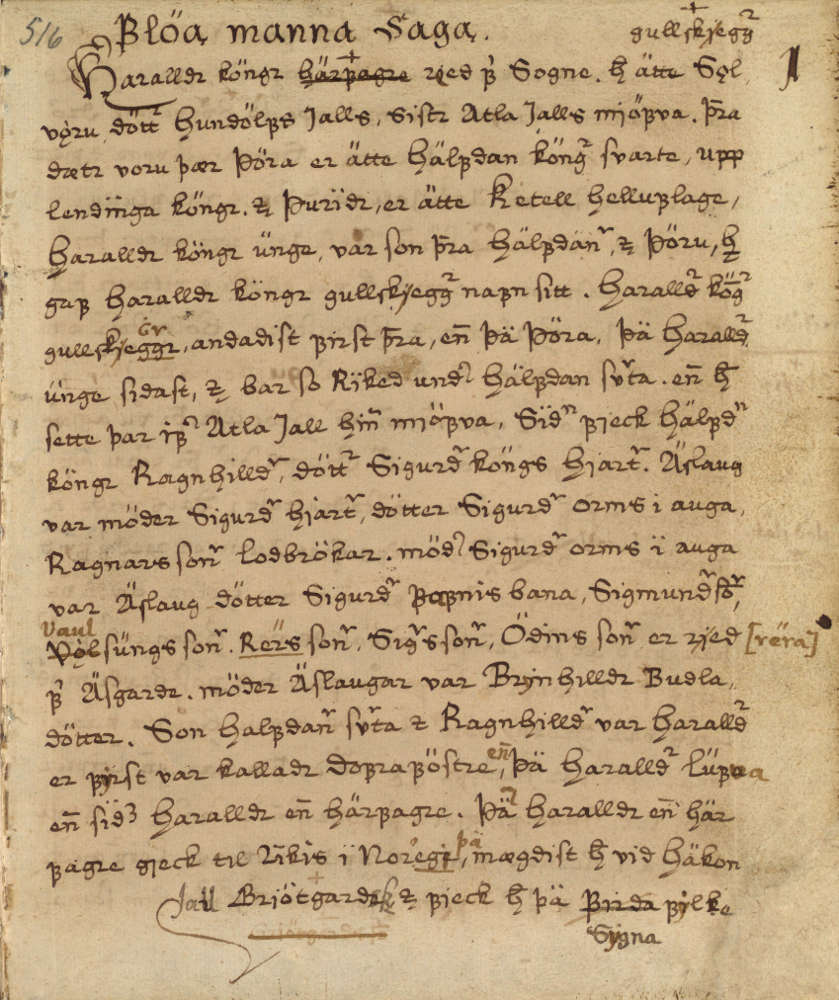 516 Flöa manna Saga. gullskjeggr
Haralldr köngr härfagre ried f Sogne. h ätte Söl
vöru dottr Hundölfs Jalls, Sistr Atla Jalls mjöfva. Þra
dætr voru þær Þöra er ätte Hälfdan köngr svarte, upp
lendinga köngr. & Þurïdr, er ätte Ketell Helluflage,
Haralldr köngr ünge, var son Þra Hälfdanr, & Þöru, h
gaf Haralldr köngr gullskjeggr nafn sitt. Haralldr köngr
gullskjeggr, andadist first Þra, en̄ Þä Þöra, Þä Haralldr
ünge sidast, & bar so Rïked undr Hälfdan svta. en̄ h
sette þar ifr Atla Jall hin̄ mjöfva, Sïdn fjeck Hälfdn
köngr Ragnhilldr, döttr Sigurdr köngs hjartr. Äslaug
var möder Sigurdr hjartr, dötter Sigurdr orms i auga,
Ragnars sonr Lodbrökar. mödr Sigurdr orms ï auga
var Äslaug dötter Sigurdr Fofnis bana, Sigmundr sor,
Vaul
Völsüngs sonr. Rers sonr, Sigrs sonr, Ödins sonr er rjed [rëra]
f Äsgardr. möder Äslaugar var Brynhilldr Budla,,
dötter. Son halfdanr svta & Ragnhilldr var Haralldr
er fyrst var kalladr Dofraföstre, en̄ Þä Haralldr lüfa
en̄ sïdz Haralldr en̄ härfagre. Þä Haralldr en̄ här
fagre gjeck til Rïkis ï Noregi, þä mægdist h vid Häkon
Jall Brjötgardsk & fjeck h þä Firda fylke
Sygna